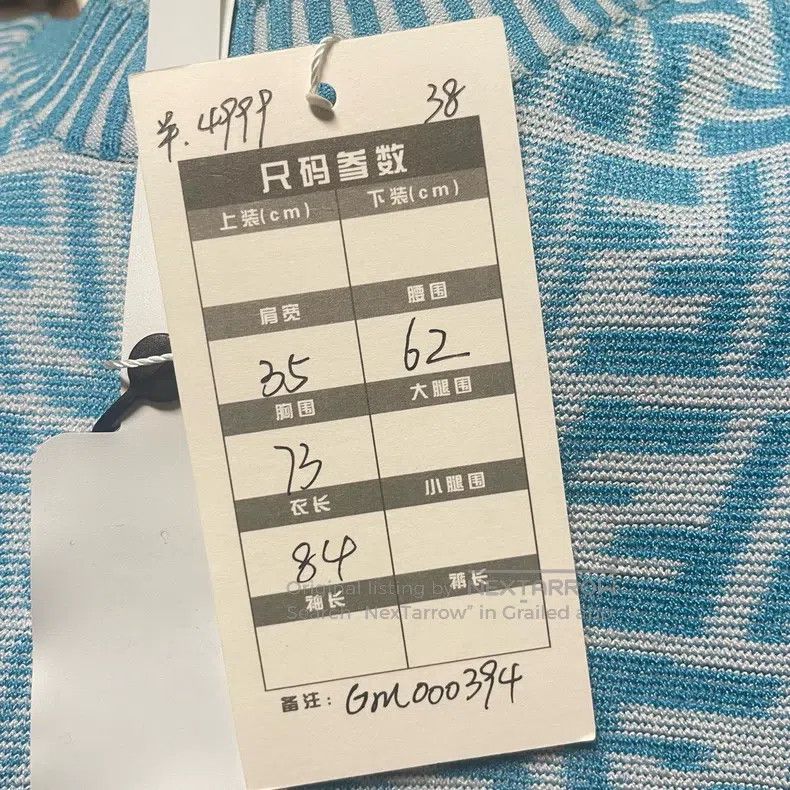 羊. 4999 38
尺码参数
上装(cm) 下装(cm)
肩宽 腰围
35 62
胸围 大腿围
73
衣长 小腿围
84
袖长 裤长
备注: GM000394
Original listing by NEXTARROW
Search "NexTarrow" in Grailed app